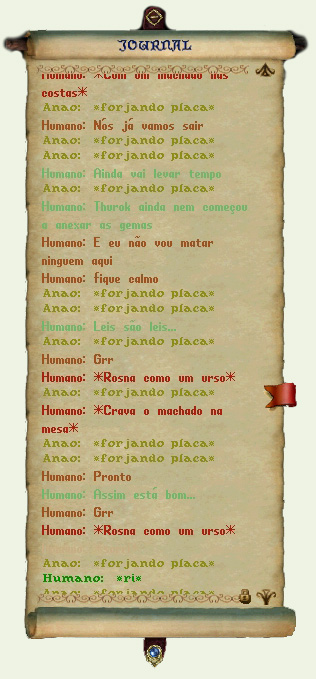 JOURNAL
Humano: *Com um machado nas
costas*
Anao: *forjando placa*
Humano: Nós já vamos sair
Anao: *forjando placa*
Anao: *forjando placa*
Humano: Ainda vai levar tempo
Anao: *forjando placa*
Humano: Thurok ainda nem começou
a anexar as gemas
Humano: E eu não vou matar
ninguem aqui
Humano: fique calmo
Anao: *forjando placa*
Anao: *forjando placa*
Humano: Leis são leis...
Anao: *forjando placa*
Humano: Grr
Humano: *Rosna como um urso*
Anao: *forjando placa*
Humano: *Crava o machado na
mesa*
Anao: *forjando placa*
Anao: *forjando placa*
Humano: Pronto
Humano: Assim está bom...
Humano: Grr
Humano: *Rosna como um urso*
Anao: *forjando placa*
Humano: *ri*
Anao: *forjando placa*